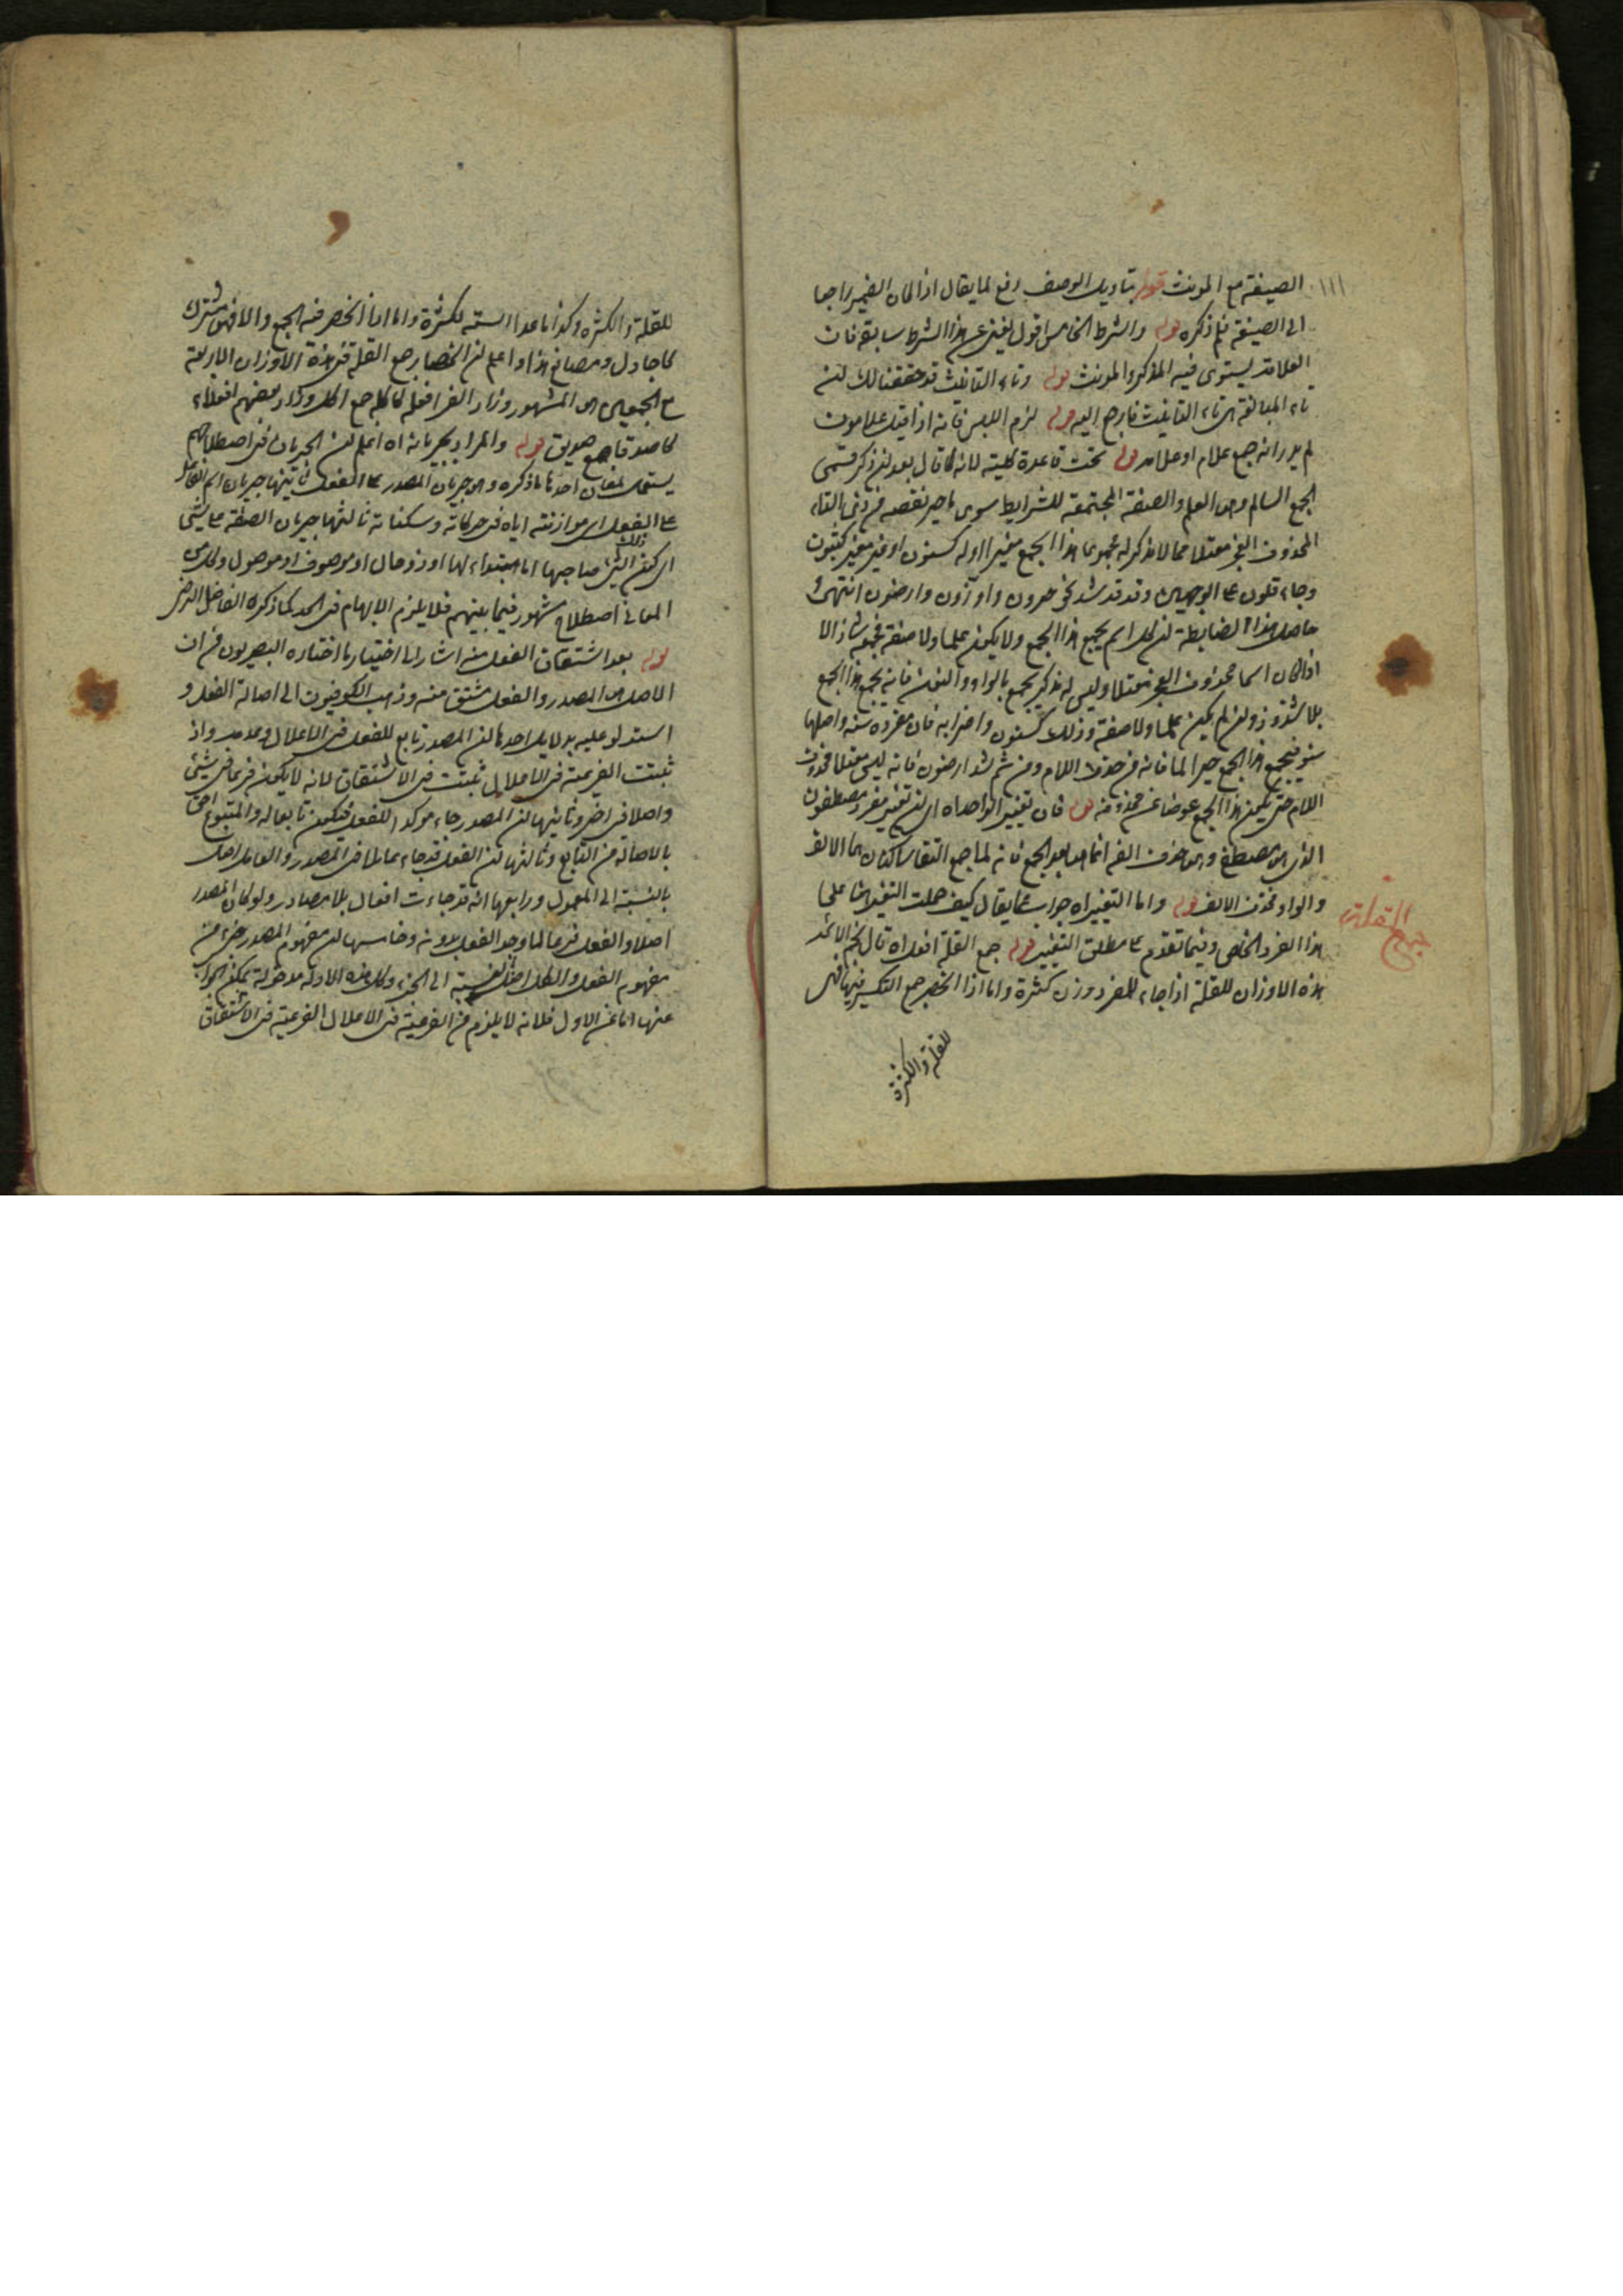 الصيغة مع المونث قوله بتاويل الوصف دفع لما يقال اذا كان الضمير راجعا
الى الصيغة فلم ذكره قوله والشرط الخامس اقول يغنى عن هذا الشرط سابقه فان
العلامة يستوى فيه المذكر والمونث قوله وتاء التانيث قد حققنا لك ان
تاء المبالغة هى تاء التانيث فارجع اليه قوله لزم اللبس فانه اذا قيل علامون
لم يدر انه جمع علام او علامه قوله تحت قاعدة كلية لانه قال بعد ان ذكر قسمى
الجمع السالم وهى العلم والصفة المجتمعة للشرايط سوى
المحذوف العجز معتلا مما لا مذكر له مجموعا هذا الجمع مغيرا اوله كسنون او غير مغير كثبون
وجاء قلون على الوجهين وقد شذ نحو حرون واوزون وارضون انتهى
حاصل هذا الضابطة ان كل اسم يجمع هذا الجمع ولا يكون علما ولا صفة فجمعه شاذ الا
اذا كان اسما محذوف العجز معتلا وليس له مذكر يجمع بالواو والنون فانه يجمع هذا الجمع
بلا شذوذ وان لم يكن علما ولا صفة وذلك كسنون واضرابه فان مفرده سنة واصلها
سنو فيجمع هذا الجمع جبرا لما فاته من حذف اللام ومن ثم شذ ارضون فانه ليس معتلا محذوف
اللام حتى يكون هذا الجمع عوضا عن محذوفه قوله فان تغيير الواحد اه اى ان تغيير مفرد مصطفون
الذى هو مصطفى وهو حذف الفه انما هو بعد الجمع فانه لما جمع التقا ساكنان هما الالف
والواو فحذف الالف قوله واما التغيير اه جواب عما يقال كيف حملت التغيير هنا على
هذا الفرد الخاص وفيما تقدم على مطلق التغيير قوله جمع القلة افعل اه قال نجم الائمة
هذه الاوزان للقلة اذا جاء للمفرد وزن كثرة واما اذا انحصر جمع التكسير فيها فهى
للقلة والكثرة
جمع القلة
للقلة والكثره وكذا ما عدا الستة للكثرة واما اذا انحصر فيه الجمع والا فهو مشترك
كاجادل ومصانع هذا واعلم ان انحصار جمع القلة فى هذه الاوزان الاربعة
مع الجمعين هو المشهور وزاد الفرا فعلة كاكلة جمع اكل وزاد بعضهم افعلاء
كاصدقا جمع صديق قوله والمراد بجريانه اه اعلم ان الجريان فى اصطلاحهم
يستعمل لمعان احدها ما ذكره وهو جريان المصدر على الفعل ثانيها جريان اسم الفاعل
على الفعل اى موازنته اياه فى حركاته وسكناته ثالثها جريان الصفة على شئ
اى كون ذلك الشئ صاحبها اما مبتداء لها او ذو حال او موصوف او موصول وكل من
المعانى اصطلاح مشهور فيما بينهم فلا يلزم الابهام فى الحد كما ذكره الفاضل الرضى
قوله بعد اشتقاق الفعل منه اشار الى اختيار ما اختاره البصريون من ان
الاصل هو المصدر والفعل مشتق منه وذهب الكوفيون الى اصالة الفعل و
استدلو عليه بدلايل احدها ان المصدر تابع للفعل فى الاعلال وعدمه واذ
ثبتت الفرعية فى الاعلال ثبتت فى الاشتقاق لانه لا يكون فرعا فى شئ
واصلا فى اخر وثانيها ان المصدر جاء موكدا للفعل فيكون تابعا له والمتبوع احق
بالاصالة من التابع وثالثها ان الفعل قد جاء عاملا فى المصدر والعامل اصل
بالنسبة الى المعمول ورابعها انه قد جاءت افعال بلا مصادر ولو كان المصدر
اصلا والفعل فرعا لما وجد الفعل بدونه وخامسها ان مفهوم المصدر جزء من
مفهوم الفعل والكل اصل بالنسبة الى الجزء وكل هذه الادلة مدخولة يمكن الجواب
عنها اما عن الاول فلانه لا يلزم من الفرعية فى الاعلال الفرعية فى الاشتقاق